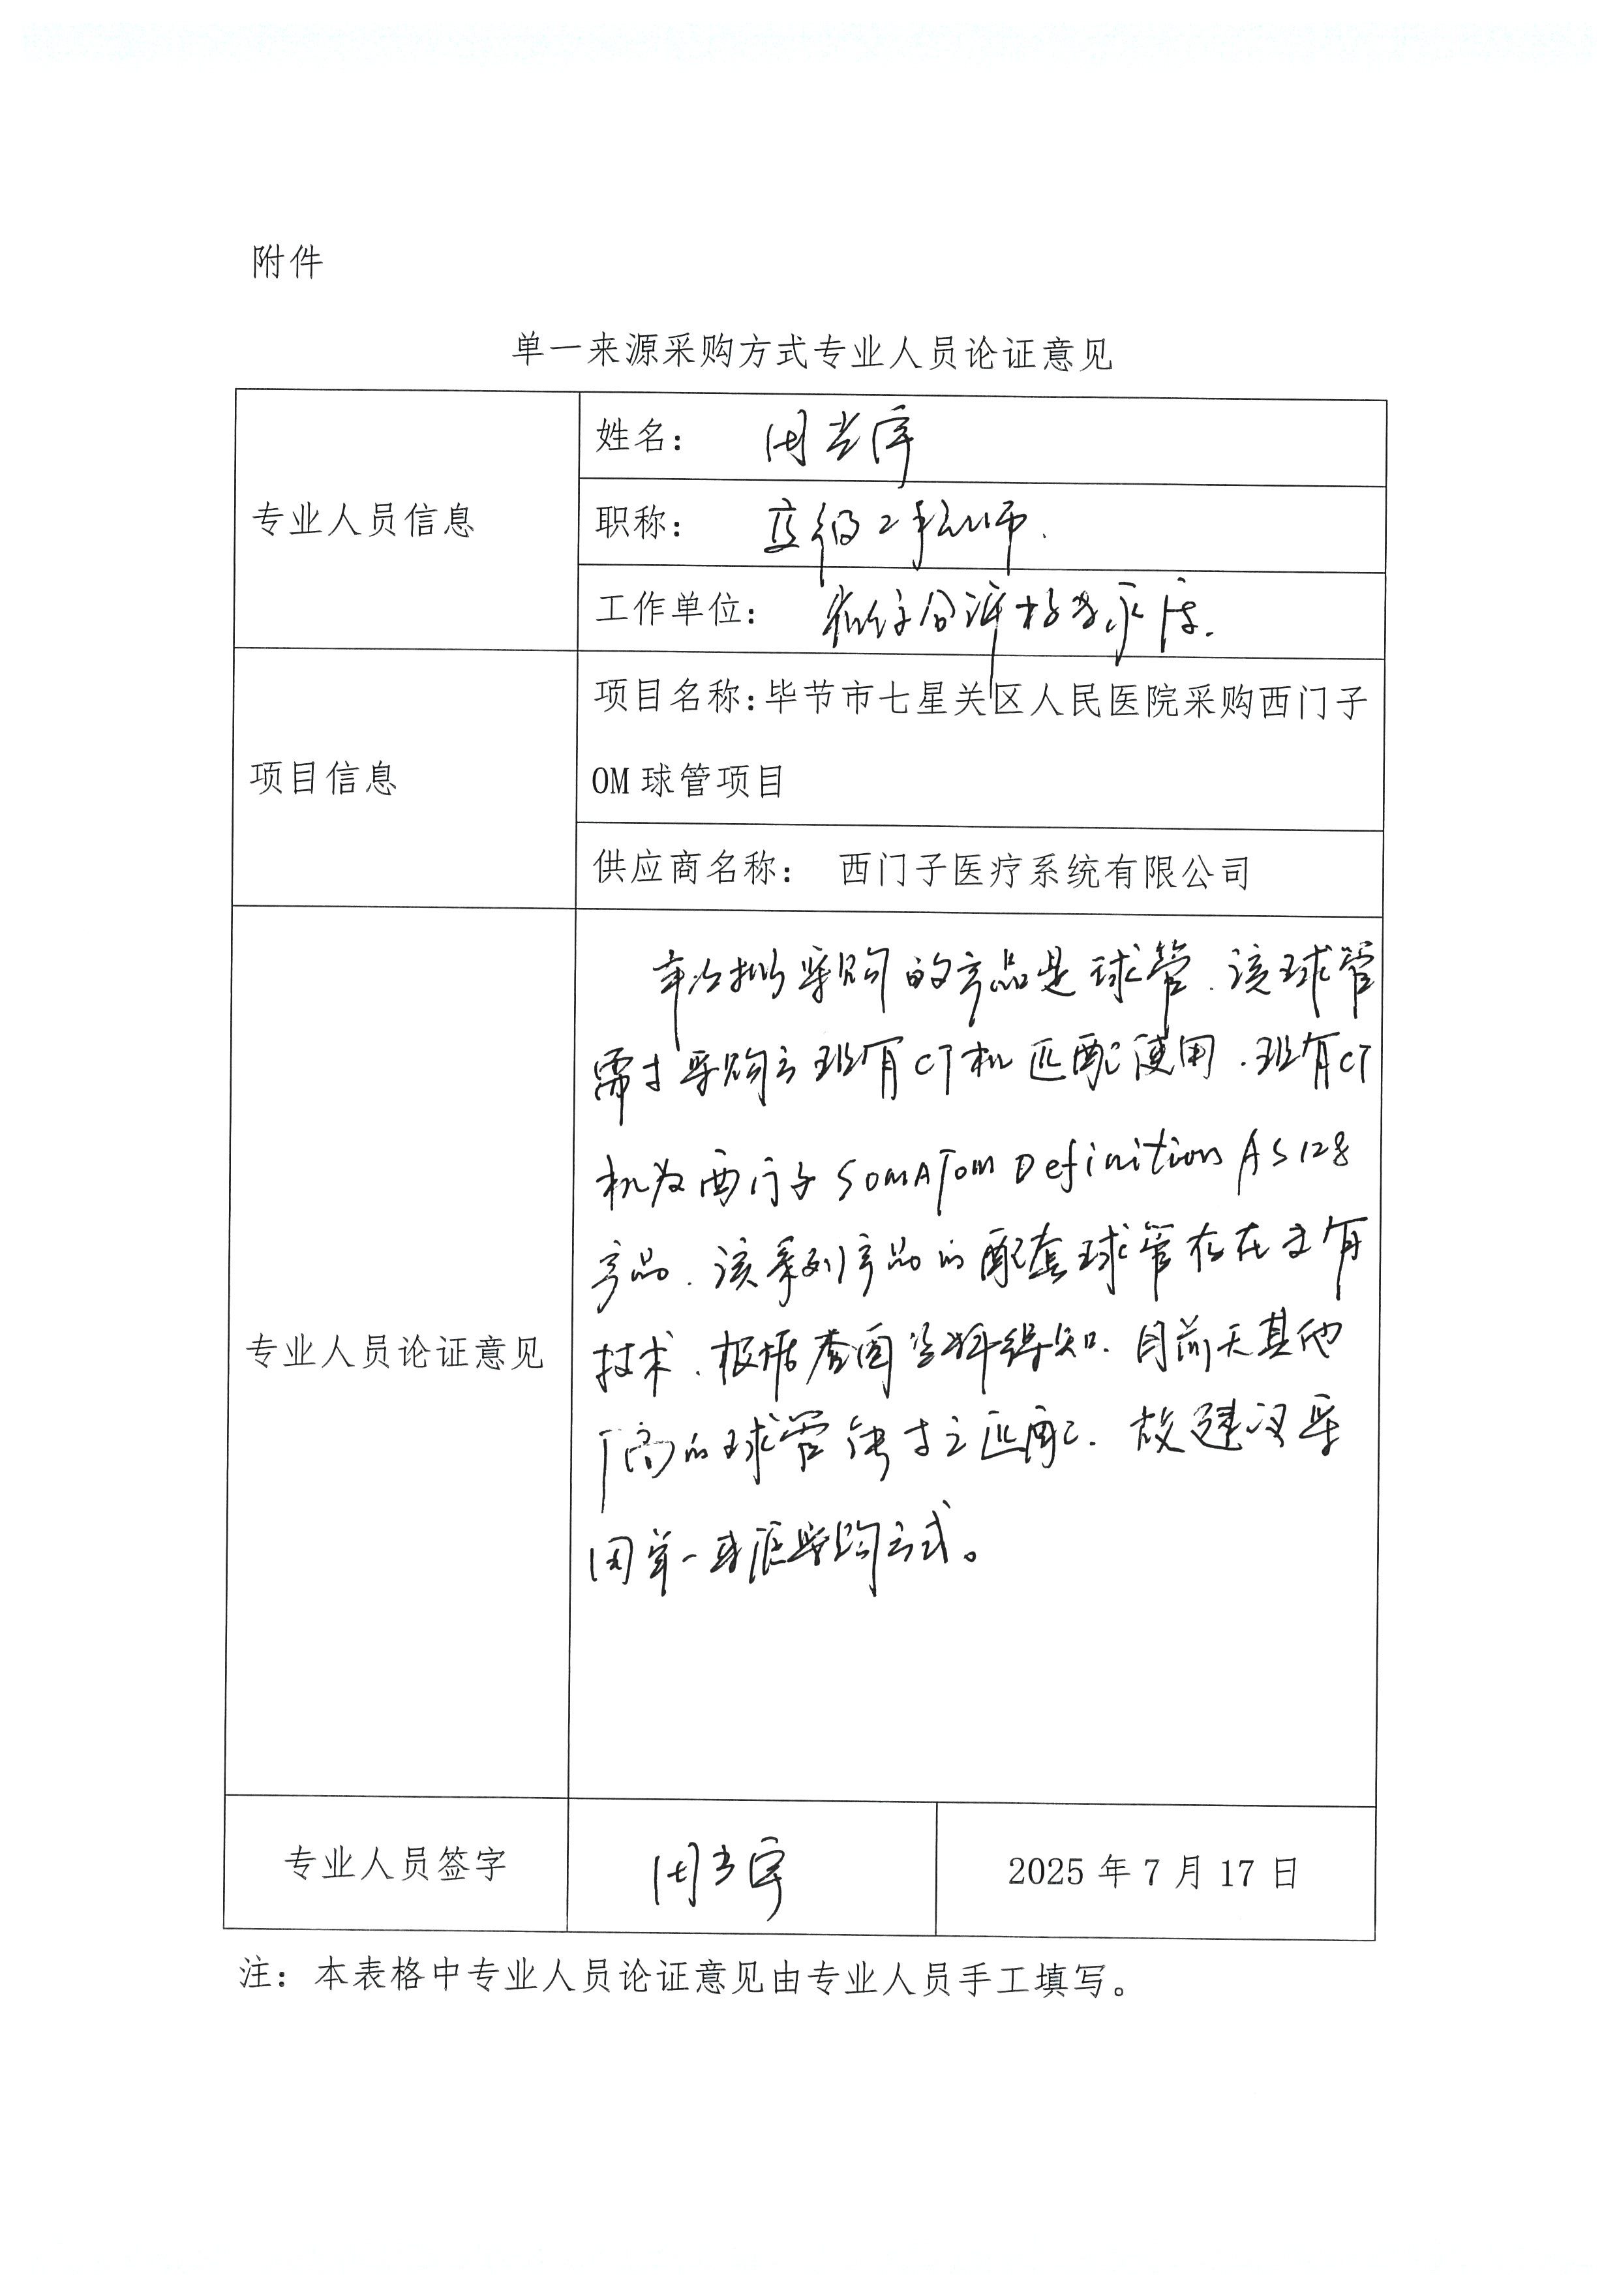 附件
单一来源采购方式专业人员论证意见
专业人员信息
姓名：
职称：高级工程师.
工作单位：
项目信息
项目名称:毕节市七星关区人民医院采购西门子
OM 球管项目
供应商名称： 西门子医疗系统有限公司
专业人员论证意见
本次拟采购的产品是球管.该球管
需与采购方现有CT机匹配使用.现有CT
机为西门子SOMATOM Definition AS 128
产品.该系列产品的配套球管存在专有
技术.根据查阅资料得知.目前无其他
厂商的球管能与之匹配.故建议采
用单一来源采购方式。
专业人员签字
2025 年 7 月 17 日
注：本表格中专业人员论证意见由专业人员手工填写。